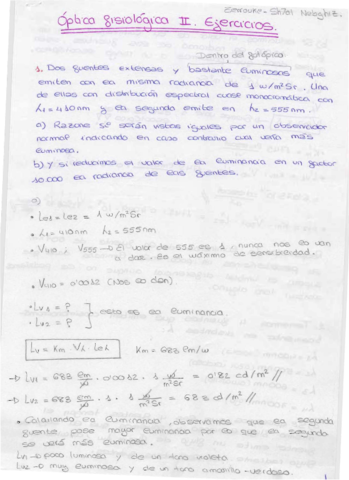 Óptica fisiológica II. Ejercicios.
Dentro del fotópico
1. Dos fuentes extensas y bastante luminosas que
emiten con la misma radiancia de 1 w/m²Sr. Una
de ellas con distribución espectral cuasi monocromática con
λ1 = 410nm y la segunda emite en λ2 = 555nm.
a) Razone si serán vistas iguales por un observador
normal indicando en caso contrario cual vería más
luminosa.
b) y si reducimos el valor de la luminancia en un factor
10.000 la radiancia de las fuentes.
a)
• Le1 = Le2 = 1 w/m²Sr
• λ1 = 410nm λ2 = 555nm
• V410, V555 → El valor de 555 es 1, nunca nos lo van
a dar. Es el máximo de sensibilidad.
• V410 = 0'0012 (Nos lo dan)
• Lv1 = ?
• Lv2 = ? esta es la luminancia.
Lv = Km Vλ · Leλ Km = 683 lm/w
→ Lv1 = 683 lm/w · 0'0012 · 1 w/m²Sr = 0'82 cd/m² //
→ Lv2 = 683 lm/w · 1 · 1 w/m²Sr = 683 cd/m² //
• Calculando la luminancia, observamos que la segunda
fuente posee mayor luminancia por lo que la segunda
se verá más luminosa.
Lv1 → poco luminosa y de un tono violeta
Lv2 → muy luminosa y de un tono amarillo-verdoso.
1